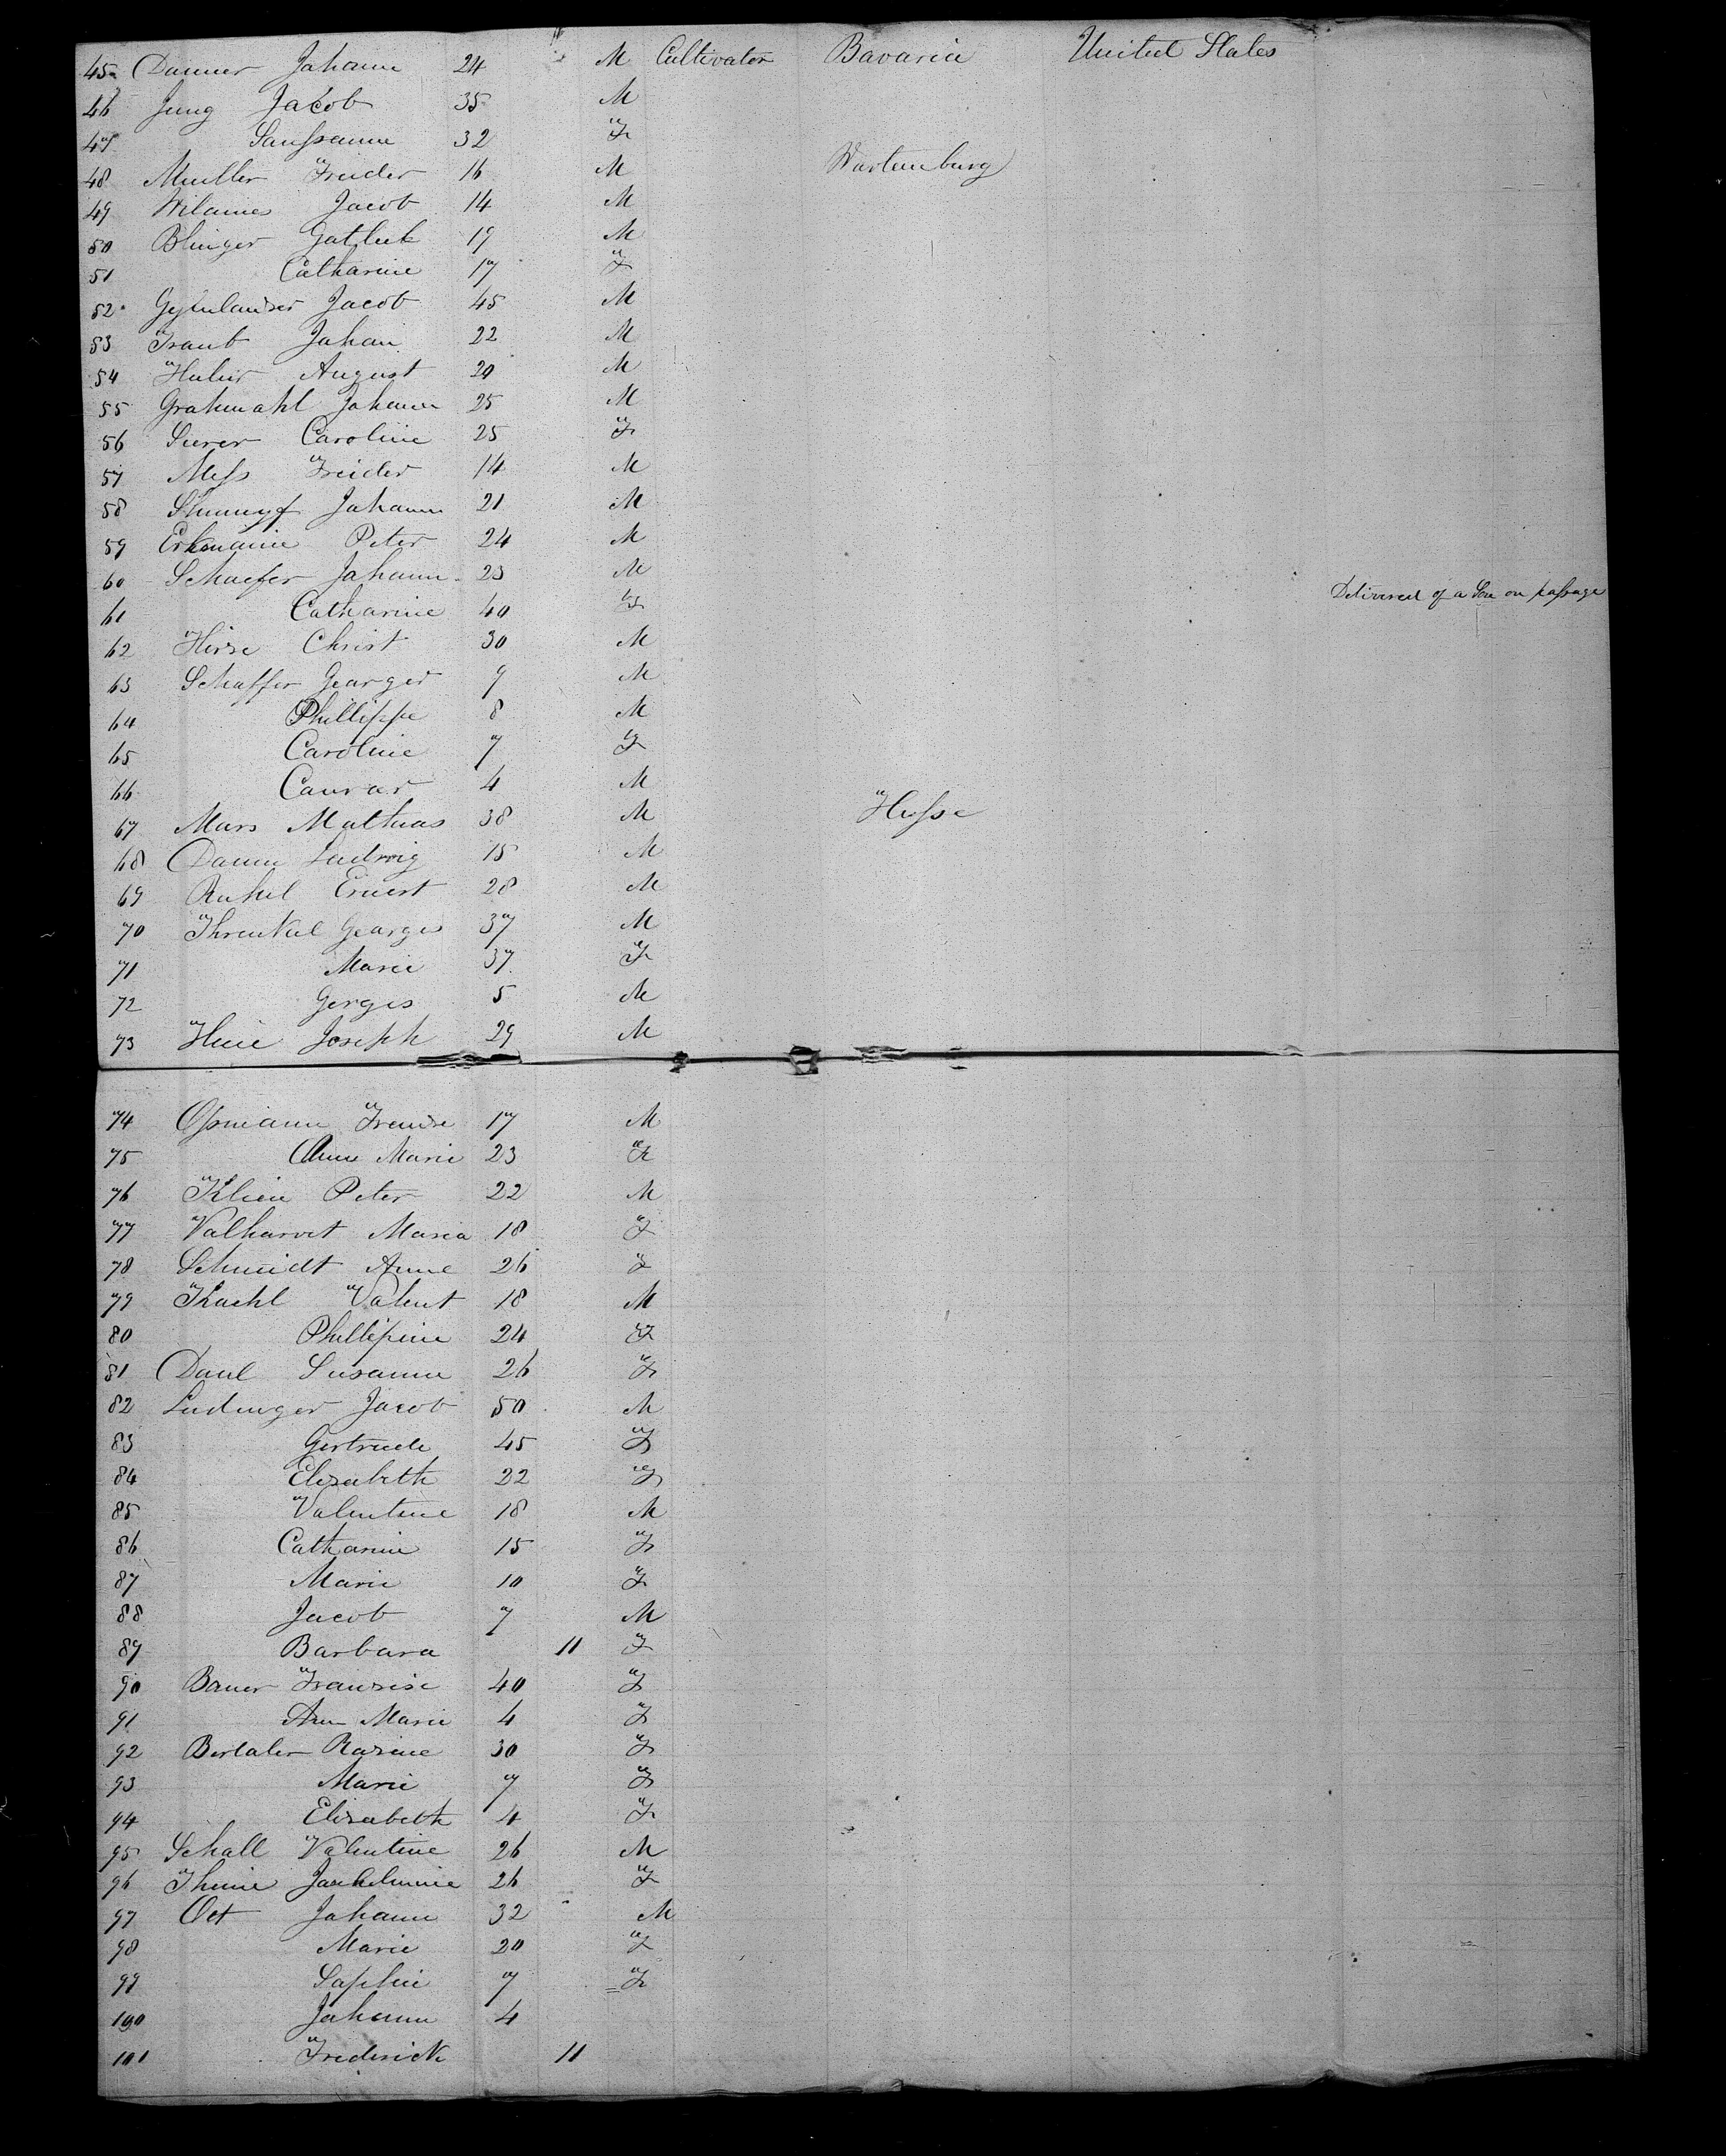 45 Danner Johann 24 M Cultivator Bavaria United States
46 Jung Jacob 35 M
47 Saussanne 32 F
48 Mueller Frieder 16 M Wurtemburg
49 Wilames Jacob 14 M
50 Blinger Gatliek 19 M
51 Catharine 17 F
52 Jacob 45 M
53 Traub Johan 22 M
54 August 20 M
55 Grahmahl Johann 25 M
56 Surer Caroline 25 F
57 Mess Frieder 14 M
58 Johann 21 M
59 Erkmaine Peter 24 M
60 Schaefer Johann 23 M
61 Catharine 40 F Delivered of a Son on passage
62 Hirse Christ 30 M
63 Schaffer Georger 9 M
64 Phillippe 8 M
65 Caroline 7 F
66 Conrar 4 M
67 Mars Mathias 38 M Hesse
68 Damm Ludwig 15 M
69 Ruhel Ernest 28 M
70 Georges 37 M
71 Marie 37 F
72 Gerges 5 M
73 Joseph 29 M
74 17 M
75 Anne Marie 23 F
76 Kliene Peter 22 M
77 Valharvet Maria 18 F
78 Schmidt Anne 26 F
79 Kuehl Valent 18 M
80 Phillipine 24 F
81 Daul Susanne 26 F
82 Ludweger Jacob 50 M
83 Gertrude 45 F
84 Elisabeth 22 F
85 Valentine 18 M
86 Catharine 15 F
87 Marie 10 F
88 Jacob 7 M
89 Barbara 11 F
90 Bauer Fransise 40 F
91 Ann Marie 4 F
92 Bertaler Rosine 30 F
93 Marie 7 F
94 Elisabeth 4 F
95 Schall Valentine 26 M
96 26 F
97 Oct Johann 32 M
98 Marie 20 F
99 Sophie 7 F
100 Johann 4
101 Frederick 11